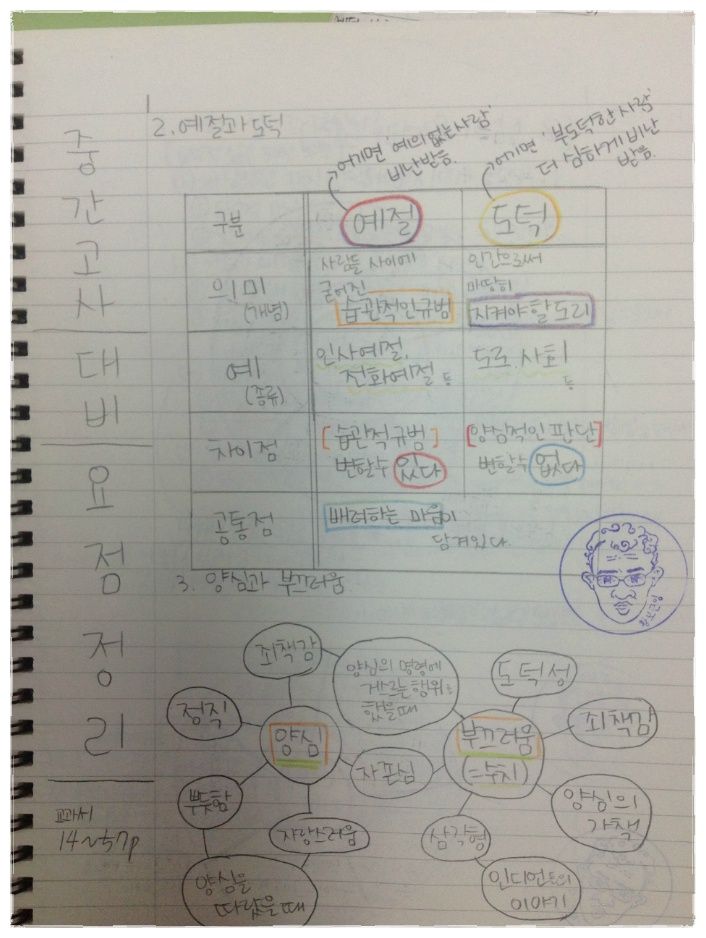 중간고사
대비
요점정리
교과서
14~57p
2. 예절과 도덕
어기면 '예의 없는 사람'
비난받음.
어기면 '부도덕한 사람'
더 심하게 비난
받음.
구분
예절
도덕
의미
(개념)
사람들 사이에
굳어진
습관적인규범
인간으로써
마땅히
지켜야할도리
예
(종류)
인사예절,
전화예절 등
도로, 사회
등
차이점
[습관적규범]
변할수 있다
[양심적인 판단]
변할수 없다
공통점
배려하는 마음이
담겨있다.
3. 양심과 부끄러움
죄책감
양심의 명령에
거스르는행위를
했을때
도덕성
정직
양심
부끄러움
(=수치)
죄책감
자존심
뿌듯함
자랑스러움
삼각형
양심의
가책
양심을
따랐을때
인디언들의
이야기